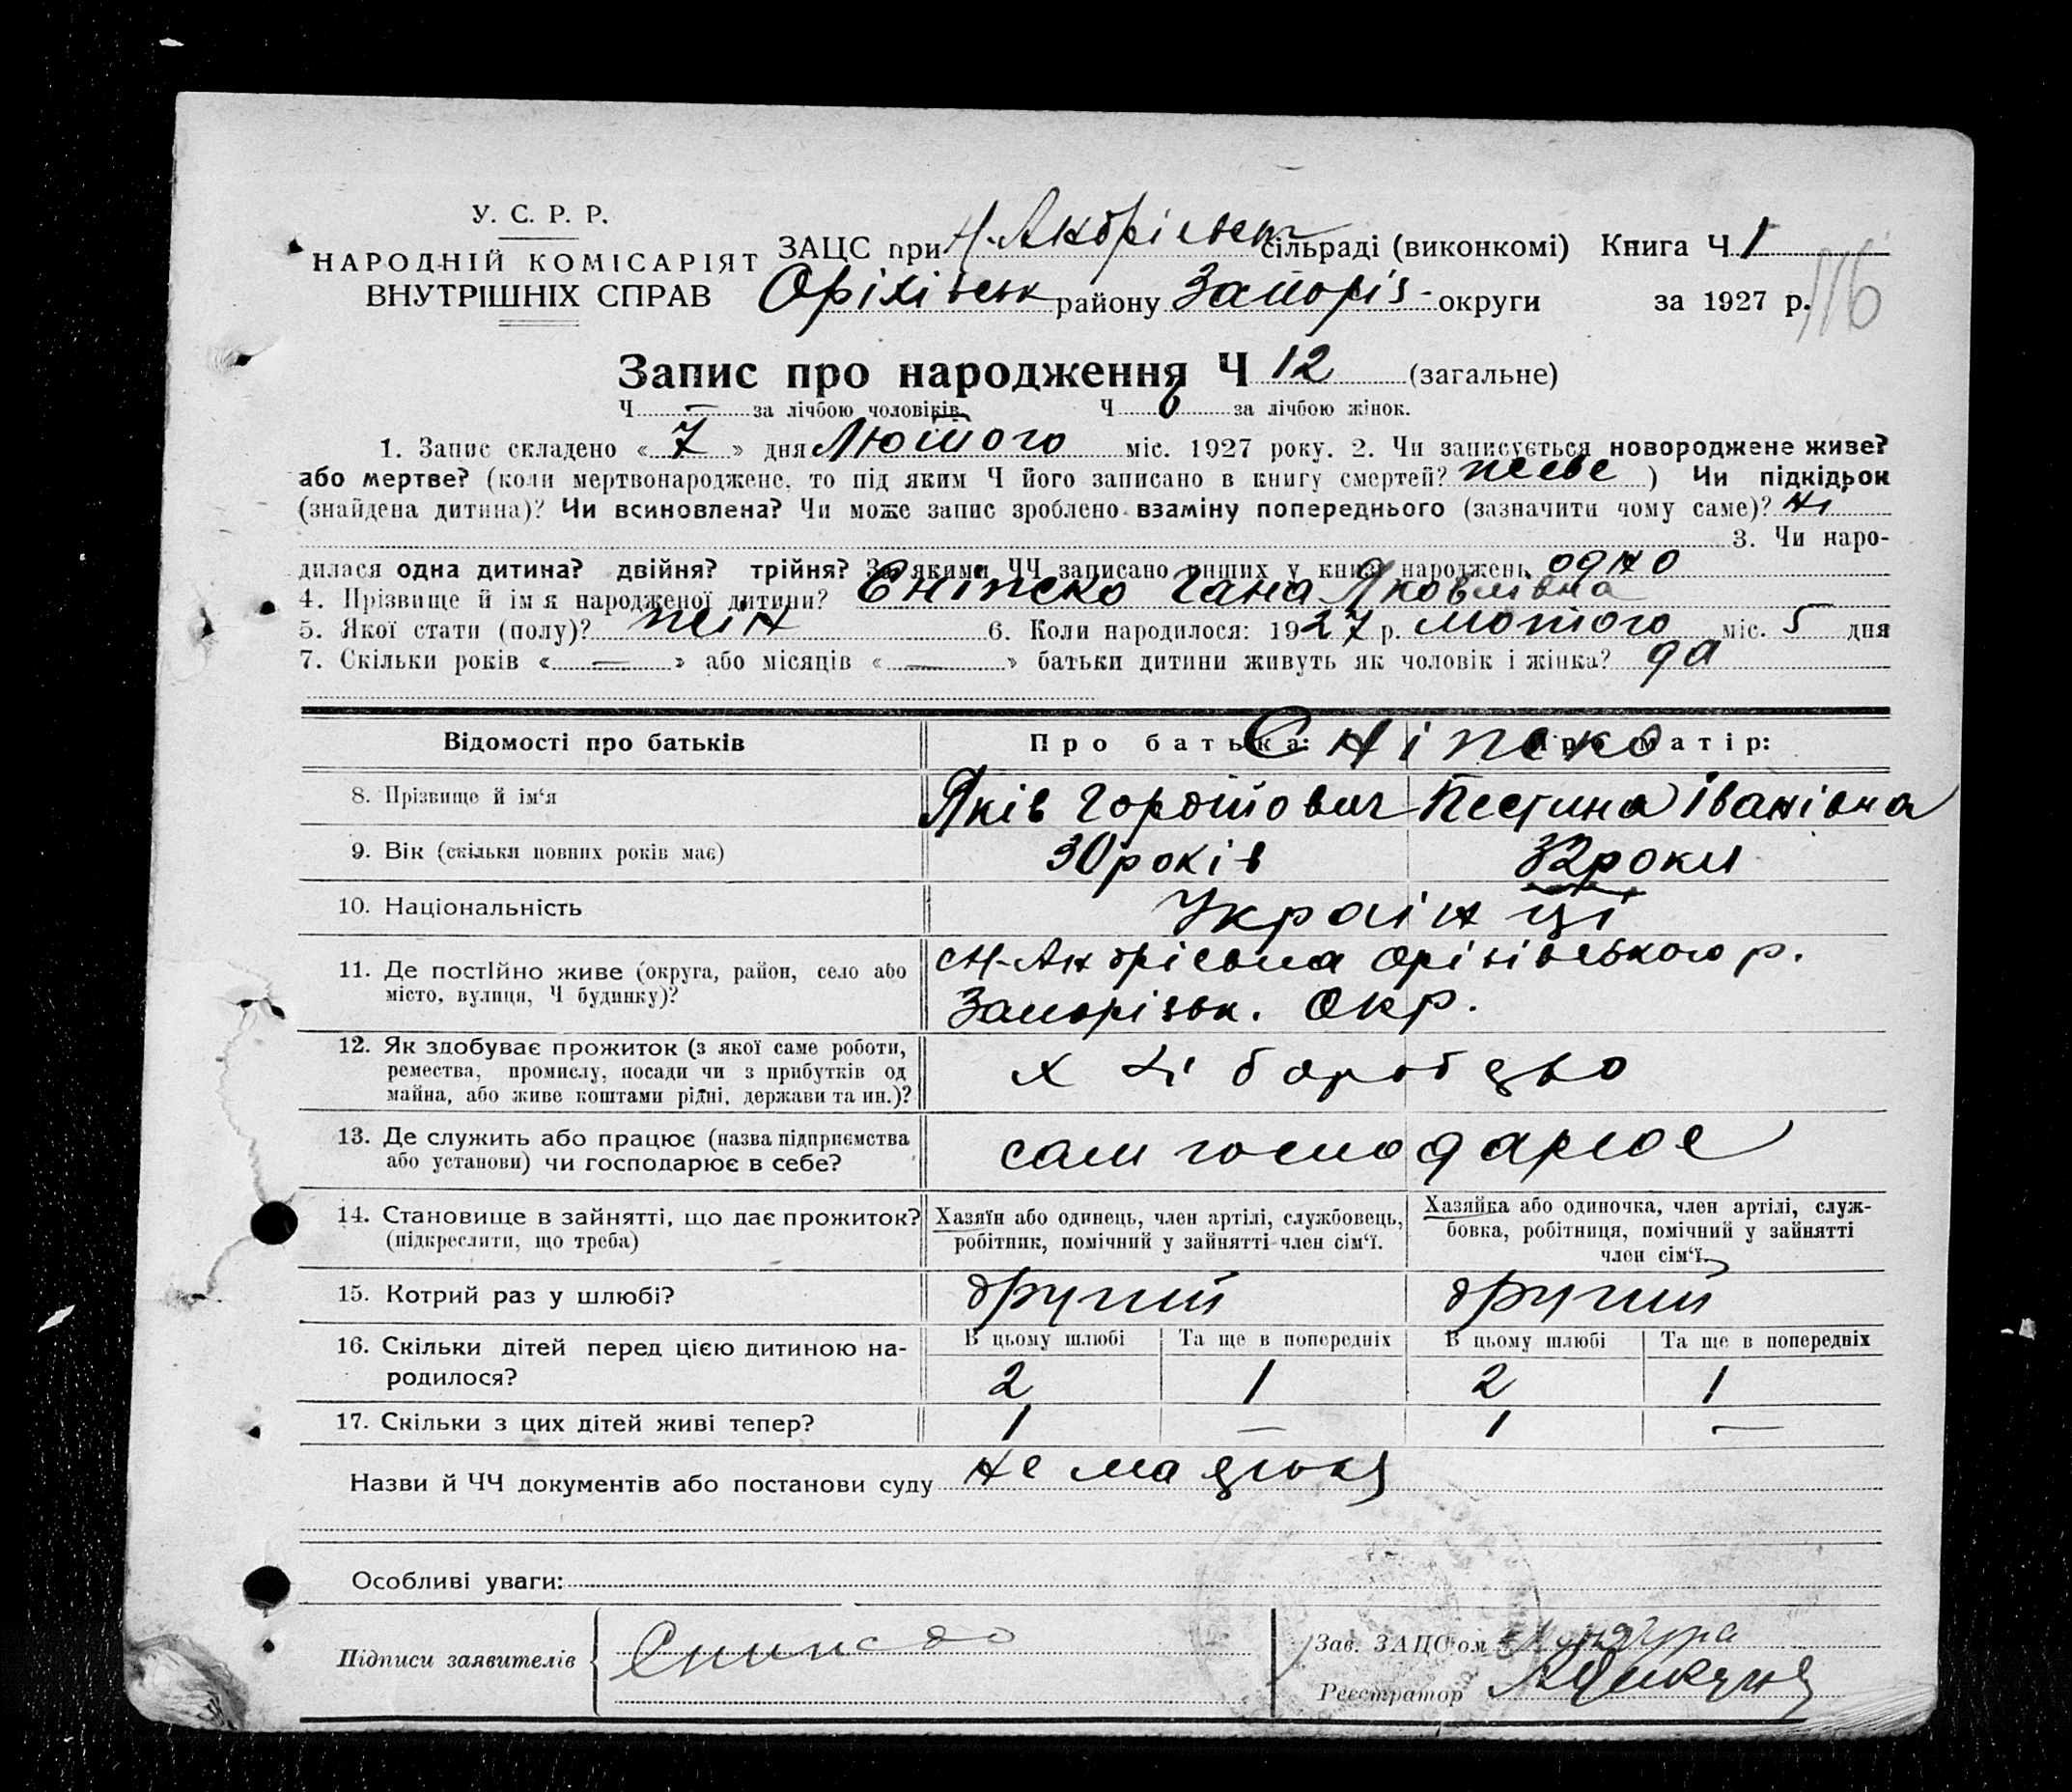 У. С. Р. Р.
НАРОДНІЙ КОМІСАРІЯТ
ВНУТРІШНІХ СПРАВ
ЗАЦС при Н-Андрієвськ сільраді (виконкомі) Книга Ч 1
Оріхівськ району Запоріз- округи за 1927 р.
116
Запис про народження Ч 12 (загальне)
Ч — за лічбою чоловіків. Ч 6 за лічбою жінок.
1. Запис складено « 7 » дня Лютого міс. 1927 року. 2. Чи записується новороджене живе?
або мертве? (коли мертвонароджене, то під яким Ч його записано в книгу смертей? живе ) Чи підкідьок
(знайдена дитина)? Чи всиновлена? Чи може запис зроблено взаміну попереднього (зазначити чому саме)? ні
3. Чи наро-
дилася одна дитина? двійня? трійня? За якими ЧЧ записано инших у книзі народжень одно
4. Прізвище й ім'я народженої дитини? Гана Яковлівна
5. Якої стати (полу)? жін 6. Коли народилося: 1927 р. лютого міс. 5 дня
7. Скільки років « — » або місяців « — » батьки дитини живуть як чоловік і жінка? да
Відомості про батьків Про батька: Про матір:
8. Прізвище й ім‘я Яків Гордійович Іванівна
9. Вік (скільки повних років має) 30 років 32 роки
10. Національність Українці
11. Де постійно живе (округа, район, село або Н-Андрієвка Оріхівського р.
місто, вулиця, Ч будинку)? Запорізьк. Окр.
12. Як здобуває прожиток (з якої саме роботи, хліборобство
ремества, промислу, посади чи з прибутків од
майна, або живе коштами рідні, держави та ин.)?
13. Де служить або працює (назва підприємства сам господарює
або установи) чи господарює в себе?
14. Становище в зайнятті, що дає прожиток? Хазяїн або одинець, член артілі, службовець, Хазяйка або одиночка, член артілі, служ-
(підкреслити, що треба) робітник, помічний у зайнятті член сім‘ї. бовка, робітниця, помічний у зайнятті
член сім‘ї.
15. Котрий раз у шлюбі? другий другий
В цьому шлюбі Та ще в попередніх В цьому шлюбі Та ще в попередніх
16. Скільки дітей перед цією дитиною на-
родилося? 2 1 2 1
17. Скільки з цих дітей живі тепер? 1 — 1 —
Назви й ЧЧ документів або постанови суду не мається
Особливі уваги:
Підписи заявителів
Зав. ЗАЦС'ом
Реєстратор